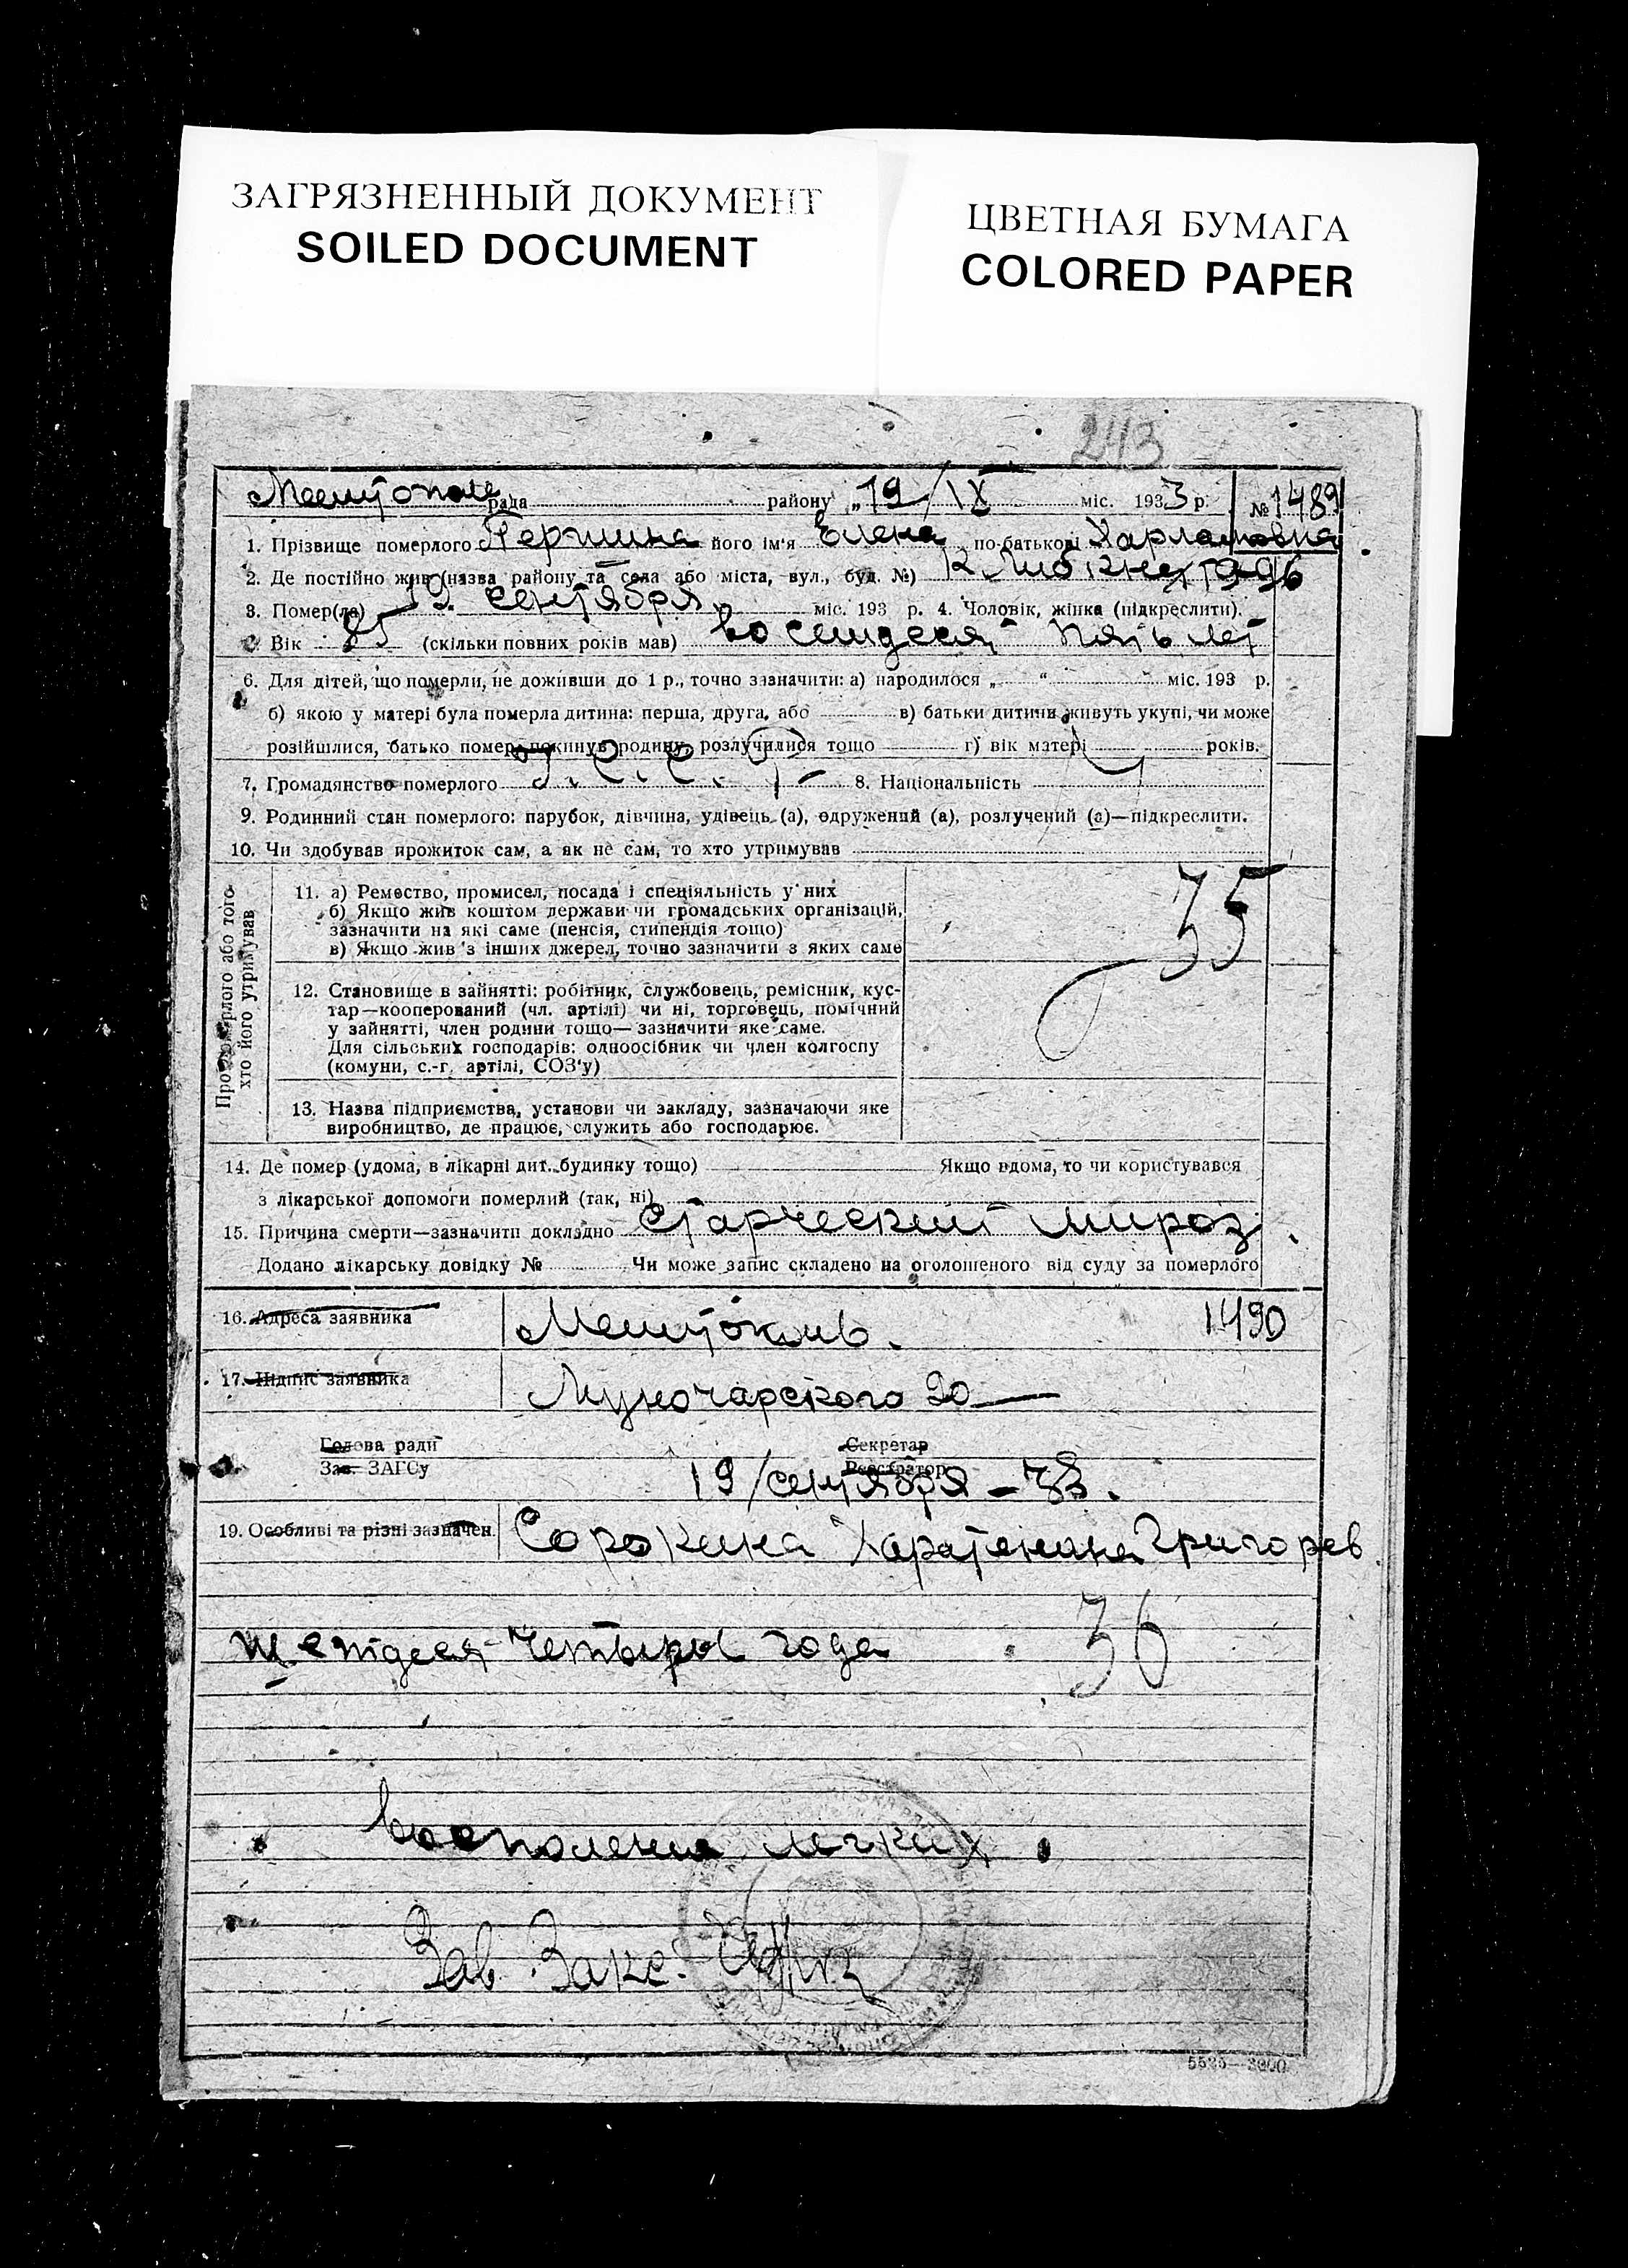 ЗАГРЯЗНЕННЫЙ ДОКУМЕНТ
SOILED DOCUMENT
ЦВЕТНАЯ БУМАГА
COLORED PAPER
243
рада району „19/IX міс. 1933 р. № 1489
1. Прізвище померлого його ім'я Елена по-батькові Харламовна
2. Де постійно жив (назва району та села або міста, вул., буд. №) К Либкнехта 96
3. Помер(ла) 19. сентября міс. 193 р. 4. Чоловік, жінка (підкреслити).
Вік 85 (скільки повних років мав) восемдесят пять лет
6. Для дітей, що померли, не доживши до 1 р., точно зазначити: а) народилося „ “ міс. 193 р.
б) якою у матері була померла дитина: перша, друга, або в) батьки дитини живуть укупі, чи може
розійшлися, батько помер, покинув родину, розлучилися тощо г) вік матері років.
7. Громадянство померлого У.С.С.Р. 8. Національність
9. Родинний стан померлого: парубок, дівчина, удівець (а), одружений (а), розлучений (а)—підкреслити.
10. Чи здобував прожиток сам, а як не сам, то хто утримував
Про померлого або того
хто його утримував
11. а) Ремество, промисел, посада і спеціяльність у них
б) Якщо жив коштом держави чи громадських організацій,
зазначити на які саме (пенсія, стипендія тощо)
в) Якщо жив з інших джерел, точно зазначити з яких саме
35
12. Становище в зайнятті: робітник, службовець, ремісник, кус-
тар—кооперований (чл. артілі) чи ні, торговець, помічний
у зайнятті, член родини тощо— зазначити яке саме.
Для сільських господарів: одноосібник чи член колгоспу
(комуни, с.-г. артілі, СОЗ'у)
13. Назва підприємства, установи чи закладу, зазначаючи яке
виробництво, де працює, служить або господарює.
14. Де помер (удома, в лікарні дит. будинку тощо) Якщо вдома, то чи користувався
з лікарської допомоги померлий (так, ні)
15. Причина смерти—зазначити докладно Старческий мироз
Додано лікарську довідку № Чи може запис складено на оголошеного від суду за померлого
16. Адреса заявника 1490
17. Підпис заявника Луночарского 20
Голова ради Секретар
Зав. ЗАГСу Реєстратор
19/сентября – 33.
19. Особливі та різні зазначен. Сорокина Григорев
четыри года 36
воспаления легких
Зав. Закс.